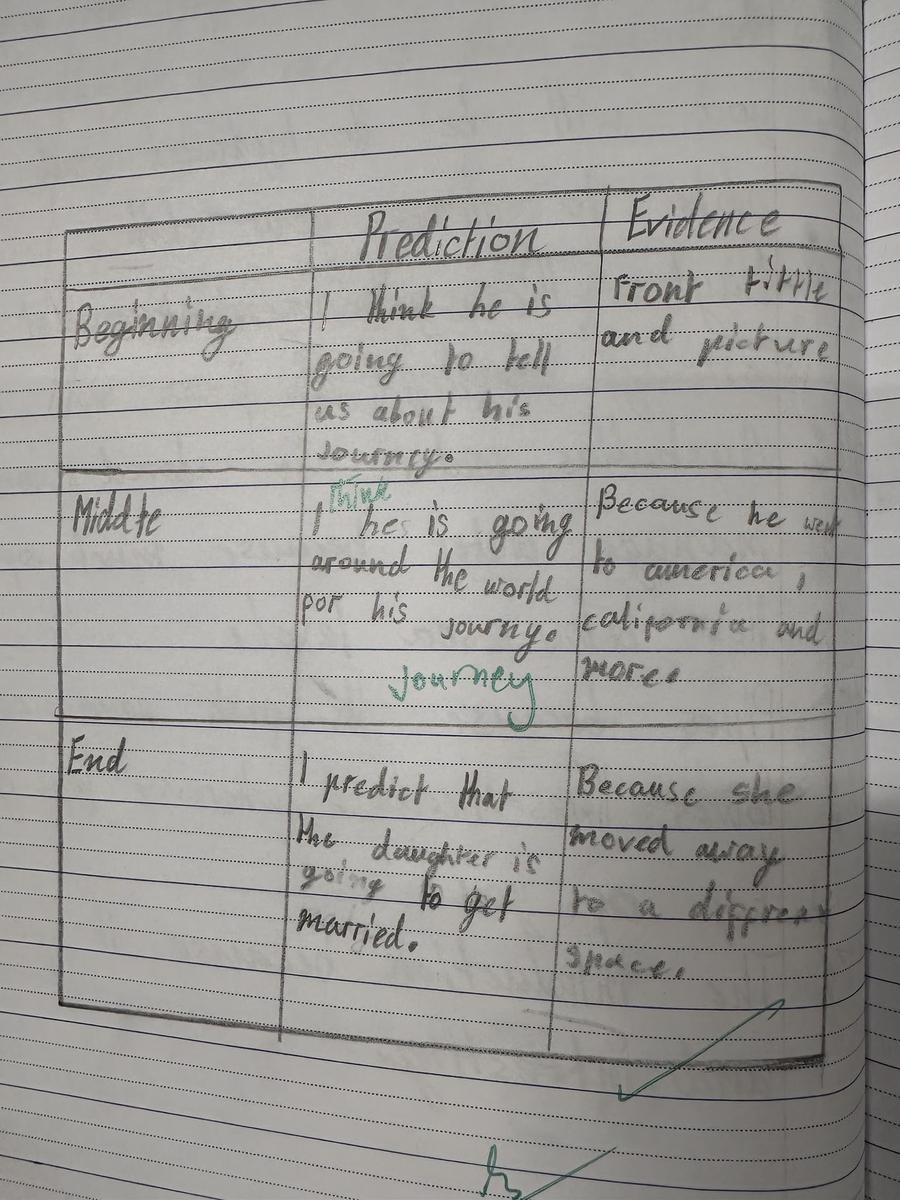 Prediction Evidence
Beginning
I think he is
going to tell
us about his
journey.
Front tittle
and picture
Middle
think
I hes is going
around the world
por his journy.
journey
Because he went
to america,
california and
more.
End
I predict that
the daughter is
going to get
married.
Because she
moved away
to a diffrent
space.